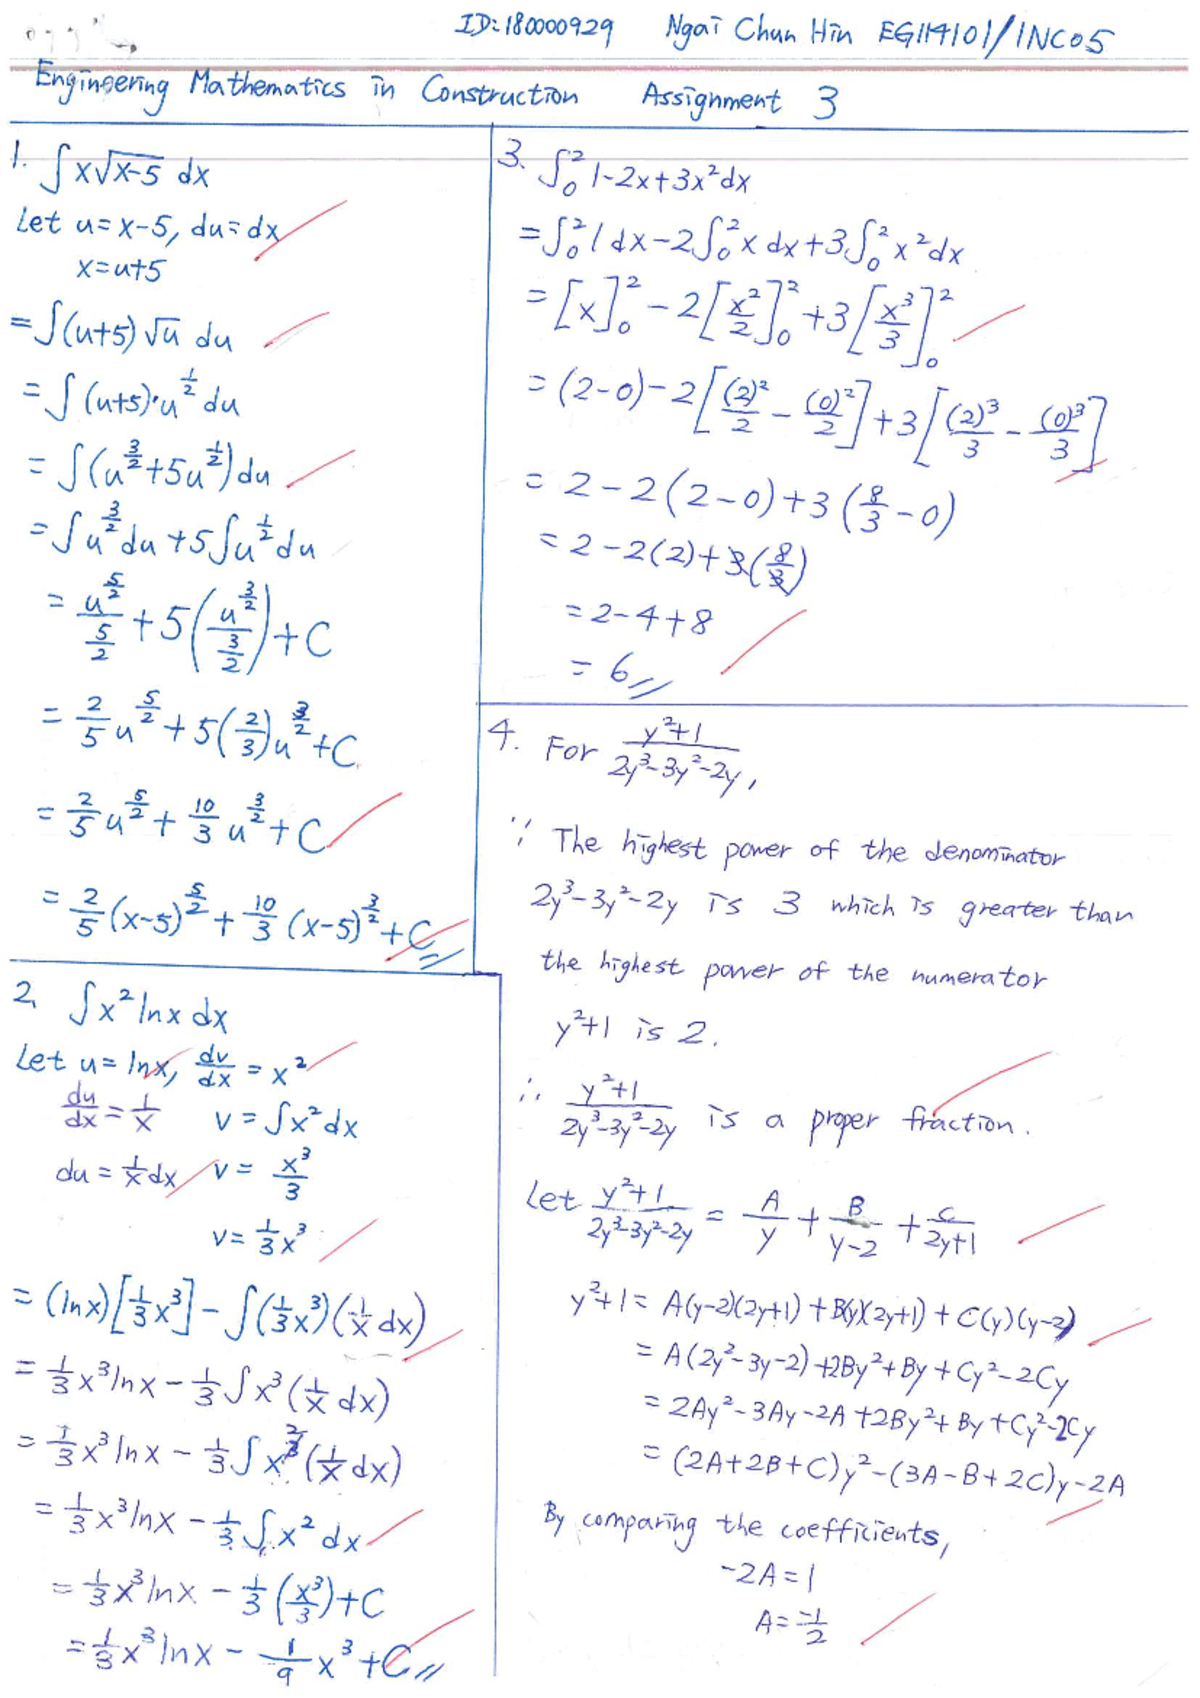 ID:180000929 Ngai Chun Hin EG114101/INC05
Engineering Mathematics in Construction Assignment 3
1. ∫x√(x-5) dx
Let u=x-5, du=dx
x=u+5
=∫(u+5)√u du
=∫(u+5)·u^(1/2) du
=∫(u^(3/2)+5u^(1/2))du
=∫u^(3/2)du+5∫u^(1/2)du
=u^(5/2)/(5/2)+5(u^(3/2)/(3/2))+C
=2/5 u^(5/2)+5(2/3)u^(3/2)+C
=2/5 u^(5/2)+10/3 u^(3/2)+C
=2/5 (x-5)^(5/2)+10/3 (x-5)^(3/2)+C
2. ∫x² lnx dx
Let u=lnx, dv/dx=x²
du/dx=1/x v=∫x²dx
du=1/x dx v=x³/3
v=1/3 x³
=(lnx)[1/3 x³]-∫(1/3 x³)(1/x dx)
=1/3 x³lnx-1/3∫x³(1/x dx)
=1/3 x³lnx-1/3∫x²(1/x dx)
=1/3 x³lnx-1/3∫x² dx
=1/3 x³lnx-1/3(x³/3)+C
=1/3 x³lnx-1/9 x³+C
3. ∫₀² 1-2x+3x²dx
=∫₀² 1dx-2∫₀² x dx+3∫₀² x²dx
=[x]₀²-2[x²/2]₀²+3[x³/3]₀²
=(2-0)-2[(2)²/2-(0)²/2]+3[(2)³/3-(0)³/3]
=2-2(2-0)+3(8/3-0)
=2-2(2)+3(8/3)
=2-4+8
=6
4. For (y²+1)/(2y³-3y²-2y),
∵ The highest power of the denominator
2y³-3y²-2y is 3 which is greater than
the highest power of the numerator
y²+1 is 2.
∴ (y²+1)/(2y³-3y²-2y) is a proper fraction.
Let (y²+1)/(2y³-3y²-2y)=A/y+B/(y-2)+C/(2y+1)
y²+1=A(y-2)(2y+1)+B(y)(2y+1)+C(y)(y-2)
=A(2y²-3y-2)+2By²+By+Cy²-2Cy
=2Ay²-3Ay-2A+2By²+By+Cy²-2Cy
=(2A+2B+C)y²-(3A-B+2C)y-2A
By comparing the coefficients,
-2A=1
A=-1/2